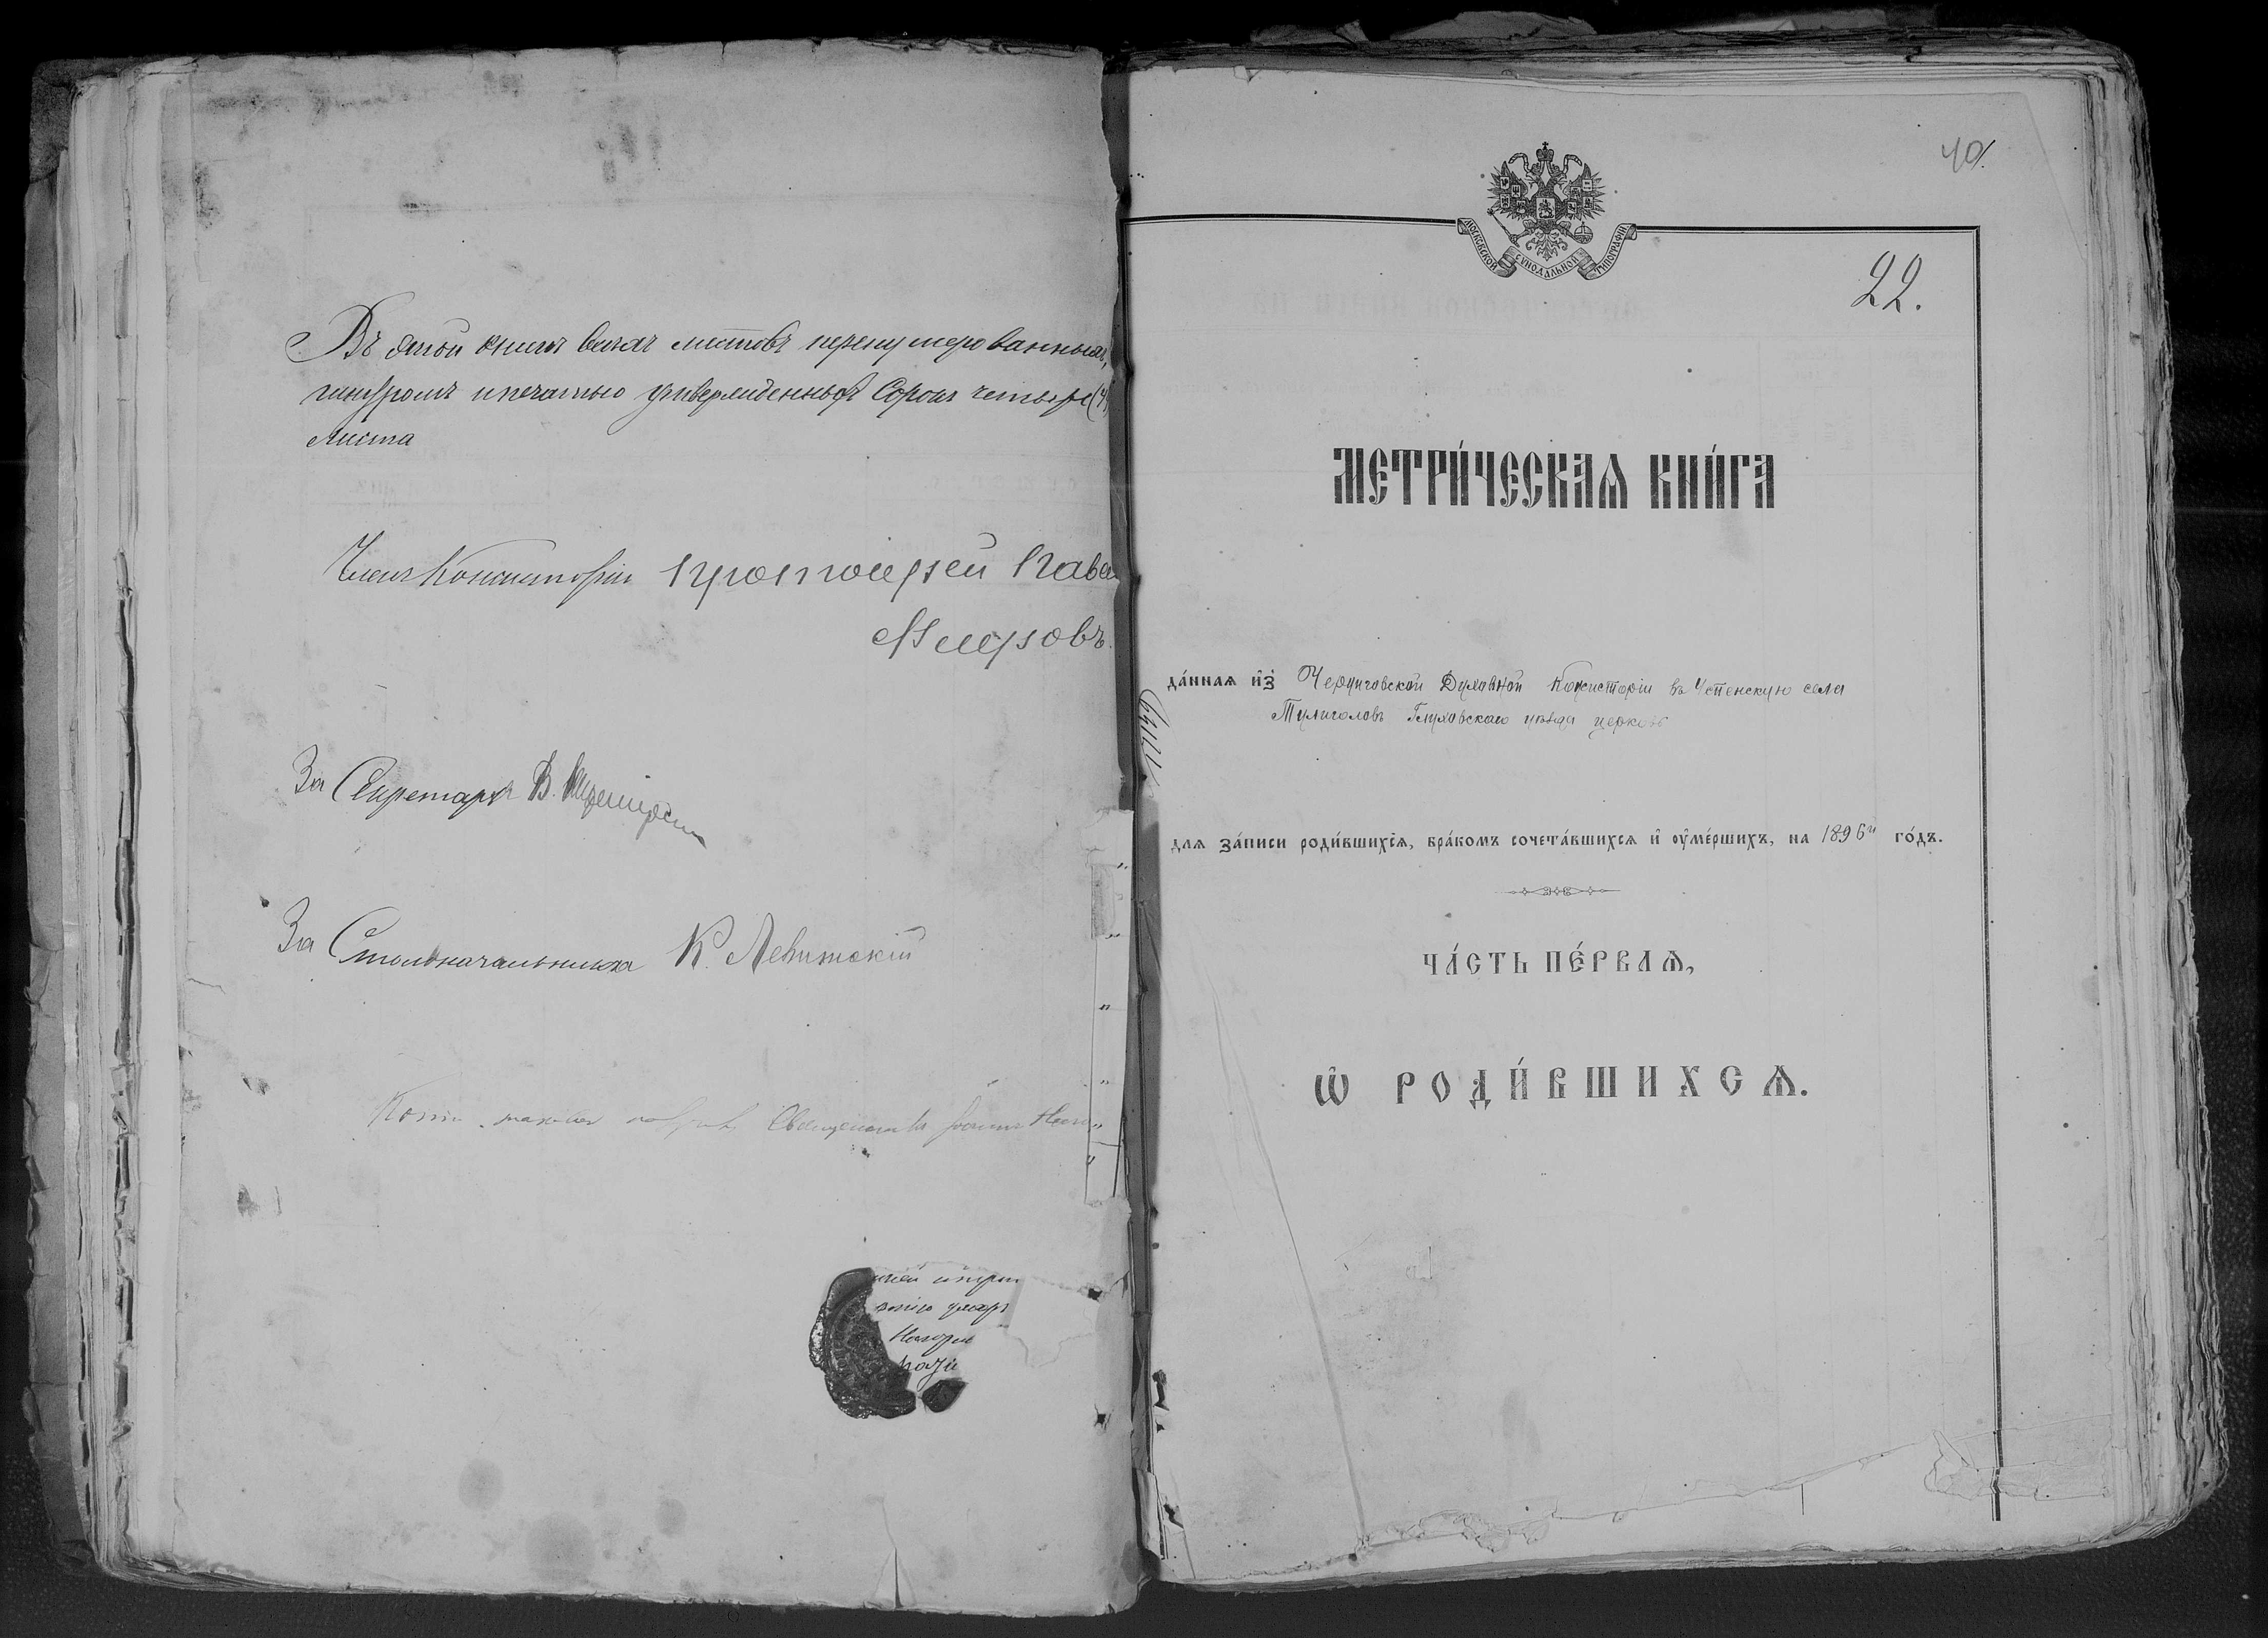 Въ этой книгѣ всѣхъ листовъ перенумерованныхъ,
шнуромъ и печатью утвержденныхъ Сорокъ четыре (4
листа
Членъ Консисторіи Протоіерей Павел
За Секретаря В.
За Столоначальника К. Левитскій
40
МОСКОВСКОЙ СѴНОДАЛЬНОЙ ТИПОГРАФІИ
22.
МЕТРИ́ЧЕСКАѦ КНИ́ГА
да́ннаѧ и҆з̾ Черниговской Духовной Консисторіи въ Успенскую села
Тулиголовъ Глуховскаго уѣзда церковь
для за́писи роди́вшихсѧ, бра́комъ сочета́вшихсѧ и҆ оу҆ме́ршихъ, на 1896й го́дъ.
ЧА́СТЬ ПЕ́РВАѦ,
Ѡ҆ РОДИ́ВШИХСѦ.